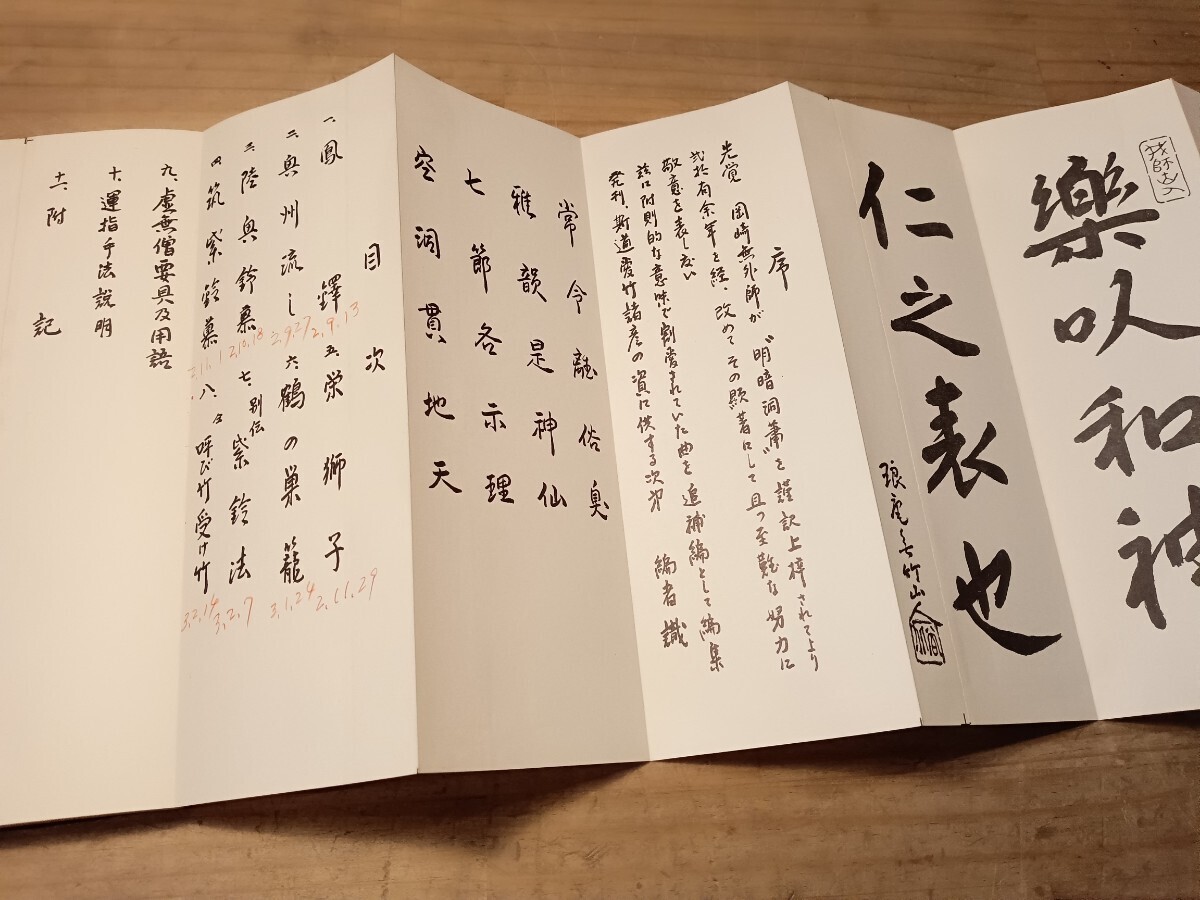 樂以和神
仁之表也
序
先覚 岡崎無外師が〝明暗洞簫〟を謹訳上梓されてより
弐拾有余年を経、改めてその顕著にして且つ至難な努力に
敬意を表したい
玆に附則的な意味で割愛されていた曲を追補編として編集
発刊、斯道愛竹諸彦の資に供する次第
編者識
常令離俗臭
雅韻是神仙
七節各示理
空洞貫地天
目次
一、鳳鐸 2,9,13
二、奥州流し 2,9,27
三、陸奥鈴慕 2,10,18
四、筑紫鈴慕
五、栄獅子 2,11,29
六、鶴の巣籠 3,1,24
七、別伝 紫鈴法 3,2,7
八、〃 呼び竹受け竹 3,2,14
九、虚無僧要具及用語
十、運指手法説明
十一、附記